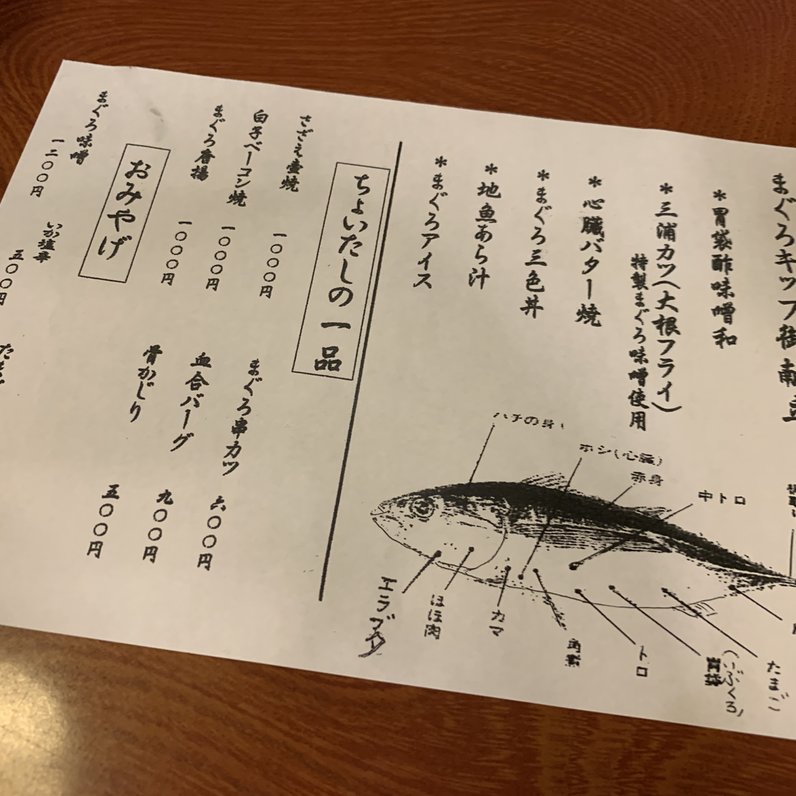 まぐろキップ街献立
*胃袋酢味噌和
*三浦カツ(大根フライ)
特製まぐろ味噌使用
*心臓バター焼
*まぐろ三色丼
*地魚あら汁
*まぐろアイス
ハチの身
ホシ(心臓)
赤身
中トロ
エラブタ
ほほ肉
カマ
トロ
胃袋
(いぶくろ)
たまご
ちょいたしの一品
さざえ壷焼 一〇〇〇円
白子ベーコン焼 一〇〇〇円
まぐろ唐揚 一〇〇〇円
まぐろ串カツ 六〇〇円
血合バーグ 九〇〇円
骨かじり 五〇〇円
おみやげ
まぐろ味噌 一二〇〇円
いか塩辛 五〇〇円